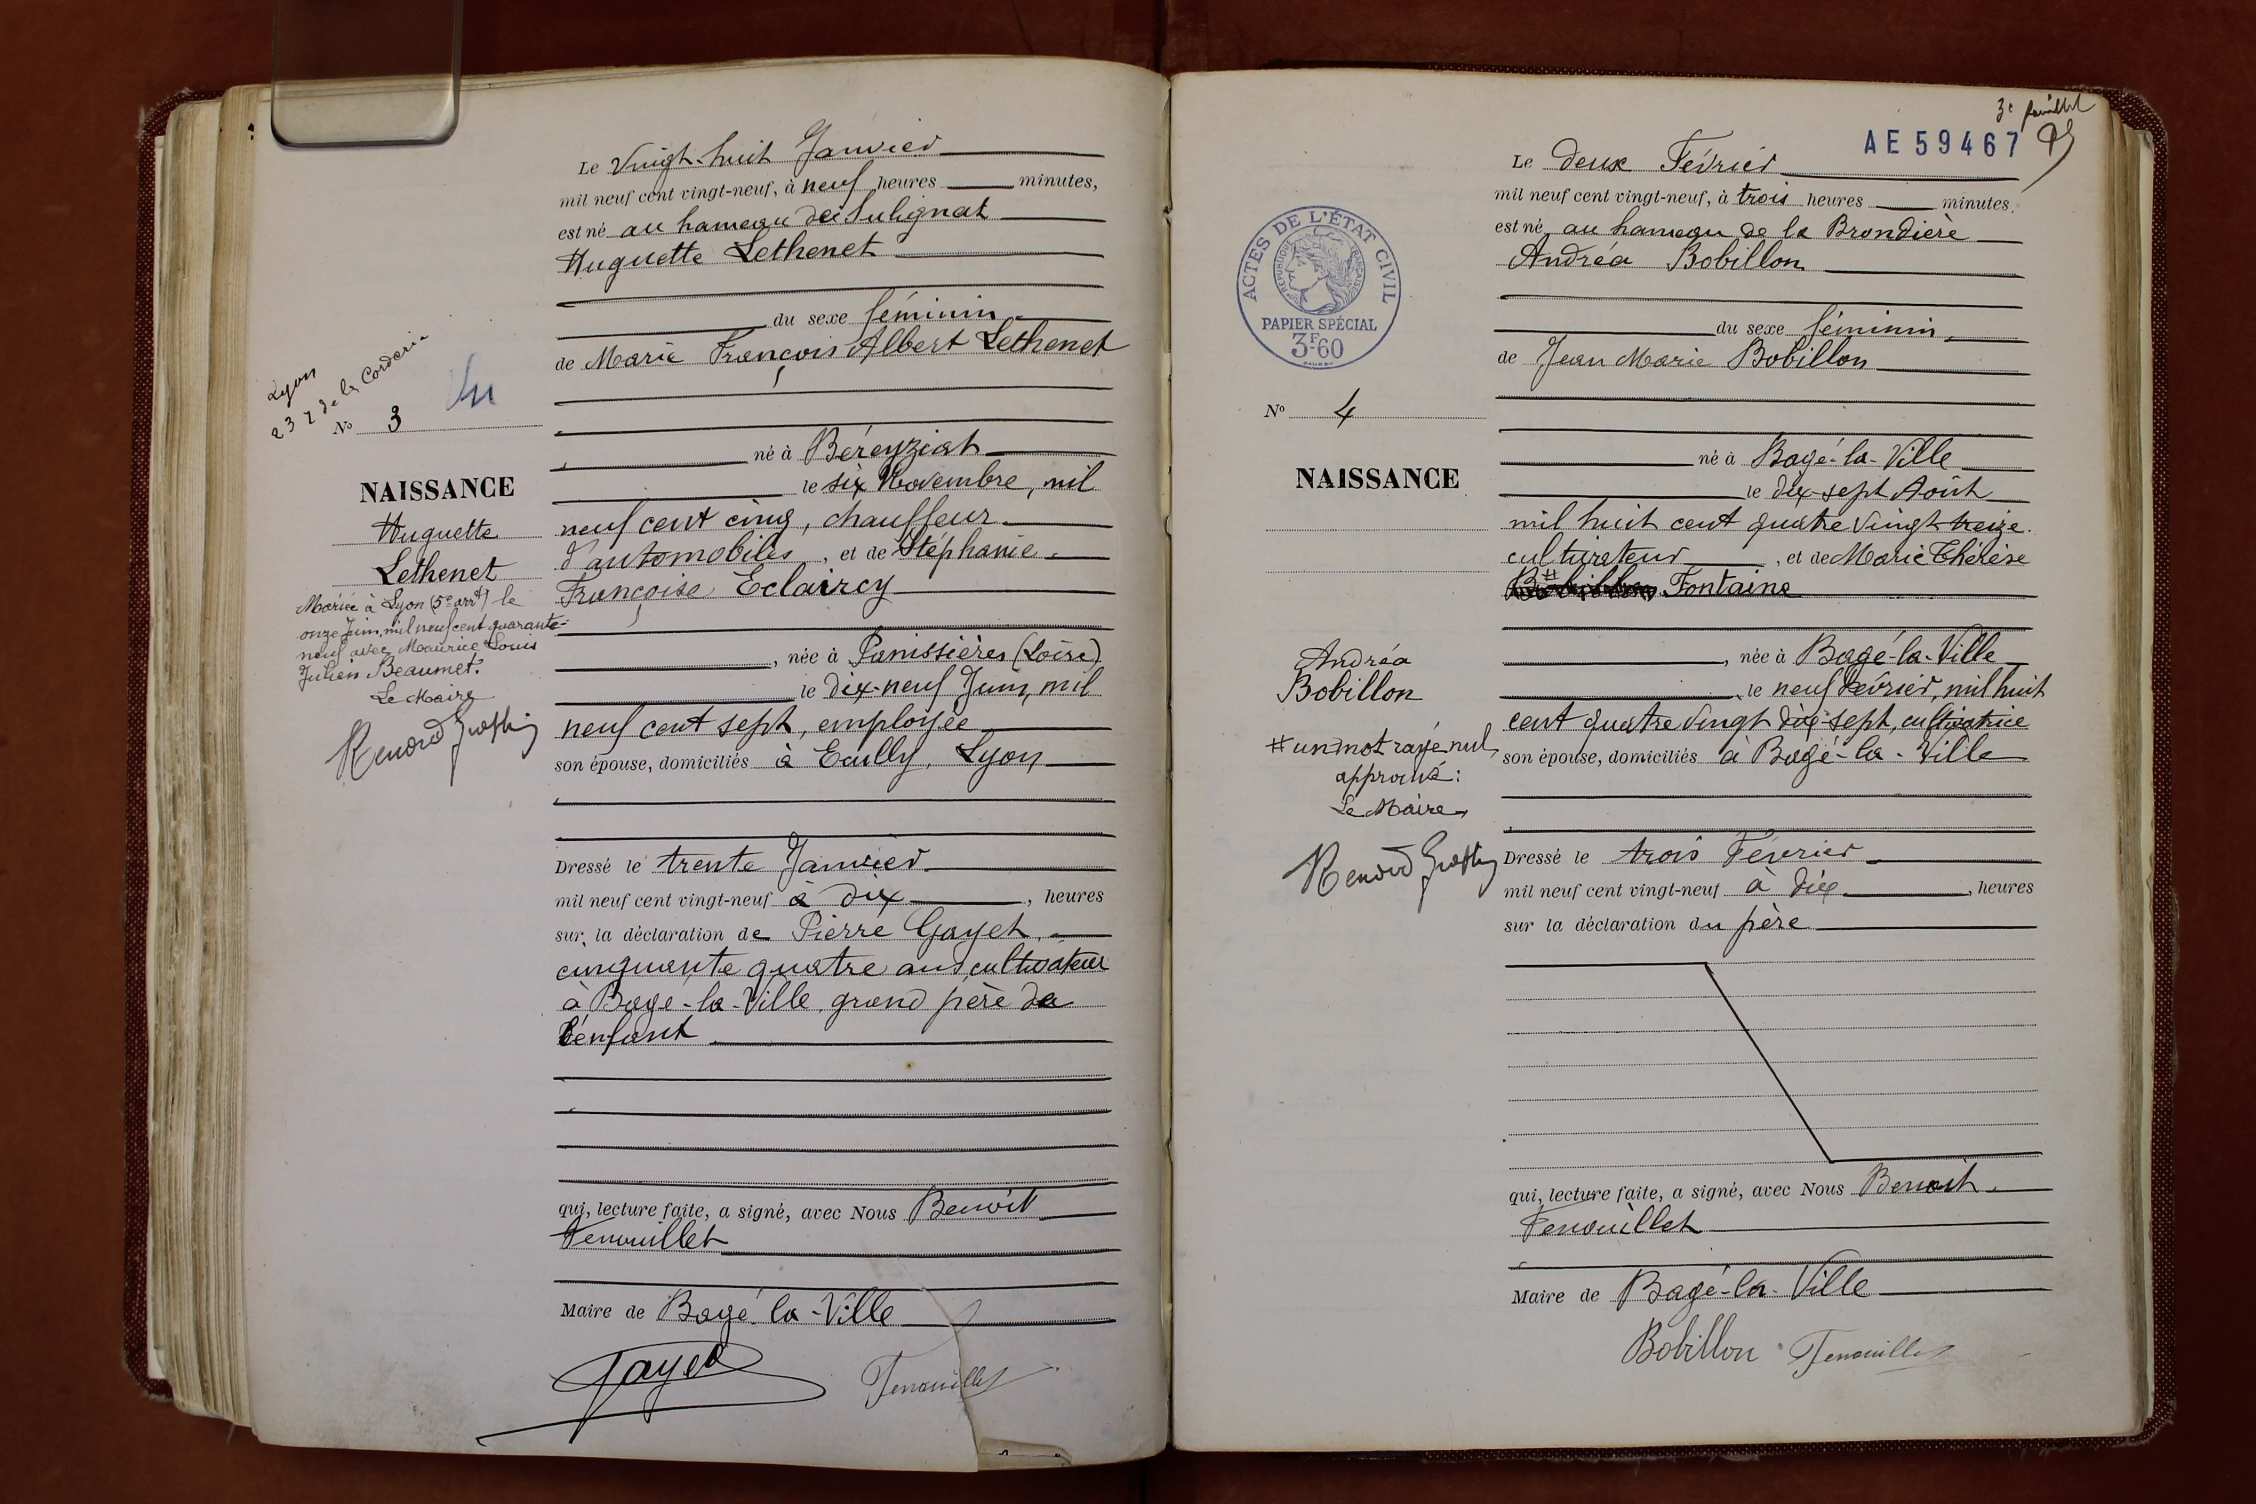 Le Vingt-huit Janvier
mil neuf cent vingt-neuf, à neuf heures minutes,
est né au hameau de Sulignat
Huguette Lethenet
du sexe féminin
de Marie François Albert Lethenet
né à Béreyziat
le six Novembre, mil
neuf cent cinq, chauffeur
d'automobiles, et de Stéphanie
Françoise Eclaircy
, née à Panissières (Loire)
le dix-neuf Juin, mil
neuf cent sept, employée
son épouse, domiciliés à Ecully, Lyon
Dressé le trente Janvier
mil neuf cent vingt-neuf à dix, heures
sur la déclaration de Pierre Gayet,
cinquante quatre ans cultivateur
à Bagé-la-Ville, grand père de
l'enfant
qui, lecture faite, a signé, avec Nous Benoit
Fenouillet
Maire de Bagé-la-Ville
Gayet Fenouillet
Lyon
de la Corderie
Vu
No 3
NAISSANCE
Huguette
Lethenet
Mariée à Lyon (5e arrt) le
onze Juin mil neuf cent quarante-
neuf avec Maurice Louis
Julien Beaumet.
Le Maire
3e feuillet
AE 59467
Le deux Février
mil neuf cent vingt-neuf, à trois heures minutes,
est né au hameau de la Brondière
Andréa Bobillon
du sexe féminin,
de Jean Marie Bobillon
né à Bagé-la-Ville
le dix-sept Août
mil huit cent quatre vingt treize
cultivateur, et de Marie Thérèse
# Fontaine
, née à Bagé-la-Ville
le neuf Février, mil huit
cent quatre vingt dix-sept, cultivatrice
son épouse, domiciliés à Bagé-la-Ville
Dressé le trois Février
mil neuf cent vingt-neuf à dix, heures
sur la déclaration du père
qui, lecture faite, a signé, avec Nous Benoit
Fenouillet
Maire de Bagé-la-Ville
Bobillon Fenouillet
ACTES DE L'ÉTAT CIVIL
RÉPUBLIQUE FRANÇAISE
PAPIER SPÉCIAL
3F60
No 4
NAISSANCE
Andréa
Bobillon
# un mot rayé nul
approuvé:
Le Maire